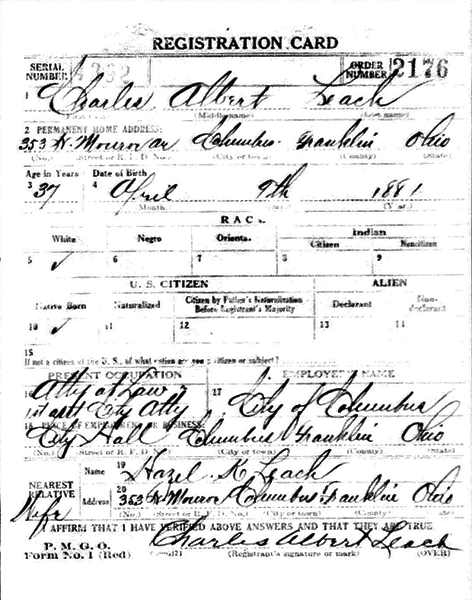 REGISTRATION CARD
SERIAL NUMBER 4232 ORDER NUMBER 2176
1 Charles Albert Leach
(First name) (Middle name) (Last name)
2 PERMANENT HOME ADDRESS:
353 N. Monroe av Columbus Franklin Ohio
(No.) (Street or R. F. D. No.) (City or town) (County) (State)
Age in Years Date of Birth
3 37 4 April 9th 1881
(Month.) (Day.) (Year.)
RACE
White Negro Oriental Indian
Citizen Noncitizen
5 ✓ 6 7 8 9
U. S. CITIZEN ALIEN
Native Born Naturalized Citizen by Father's Naturalization Before Registrant's Majority Declarant Non-declarant
10 ✓ 11 12 13 14
15
If not a citizen of the U. S., of what nation are you a citizen or subject?
PRESENT OCCUPATION EMPLOYER'S NAME
16 Atty at Law 17 City of Columbus
1st asst City Atty
18 PLACE OF EMPLOYMENT OR BUSINESS:
City Hall Columbus Franklin Ohio
(No.) (Street or R. F. D. No.) (City or town) (County) (State)
NEAREST RELATIVE Name 19 Hazel K Leach
Address 20 353 N Monroe Columbus Franklin Ohio
(No.) (Street or R. F. D. No.) (City or town) (County) (State)
Wife
I AFFIRM THAT I HAVE VERIFIED ABOVE ANSWERS AND THAT THEY ARE TRUE
P. M. G. O.
Form No. 1 (Red) Charles Albert Leach
(Registrant's signature or mark) (OVER)